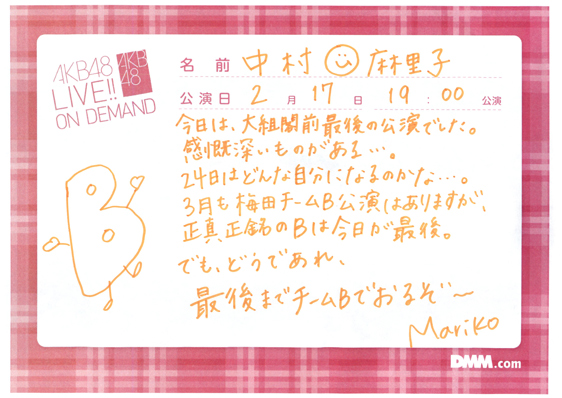 AKB48
LIVE!!
ON DEMAND
AKB
48
名前 中村 麻里子
公演日 2月17日 19:00 公演
今日は、大組閣前最後の公演でした。
感慨深いものがある…。
24日はどんな自分になるのかな…。
3月も梅田チームB公演はありますが、
正真正銘のBは今日が最後。
でも、どうであれ、
最後までチームBでおるぞ〜
Mariko
DMM.com